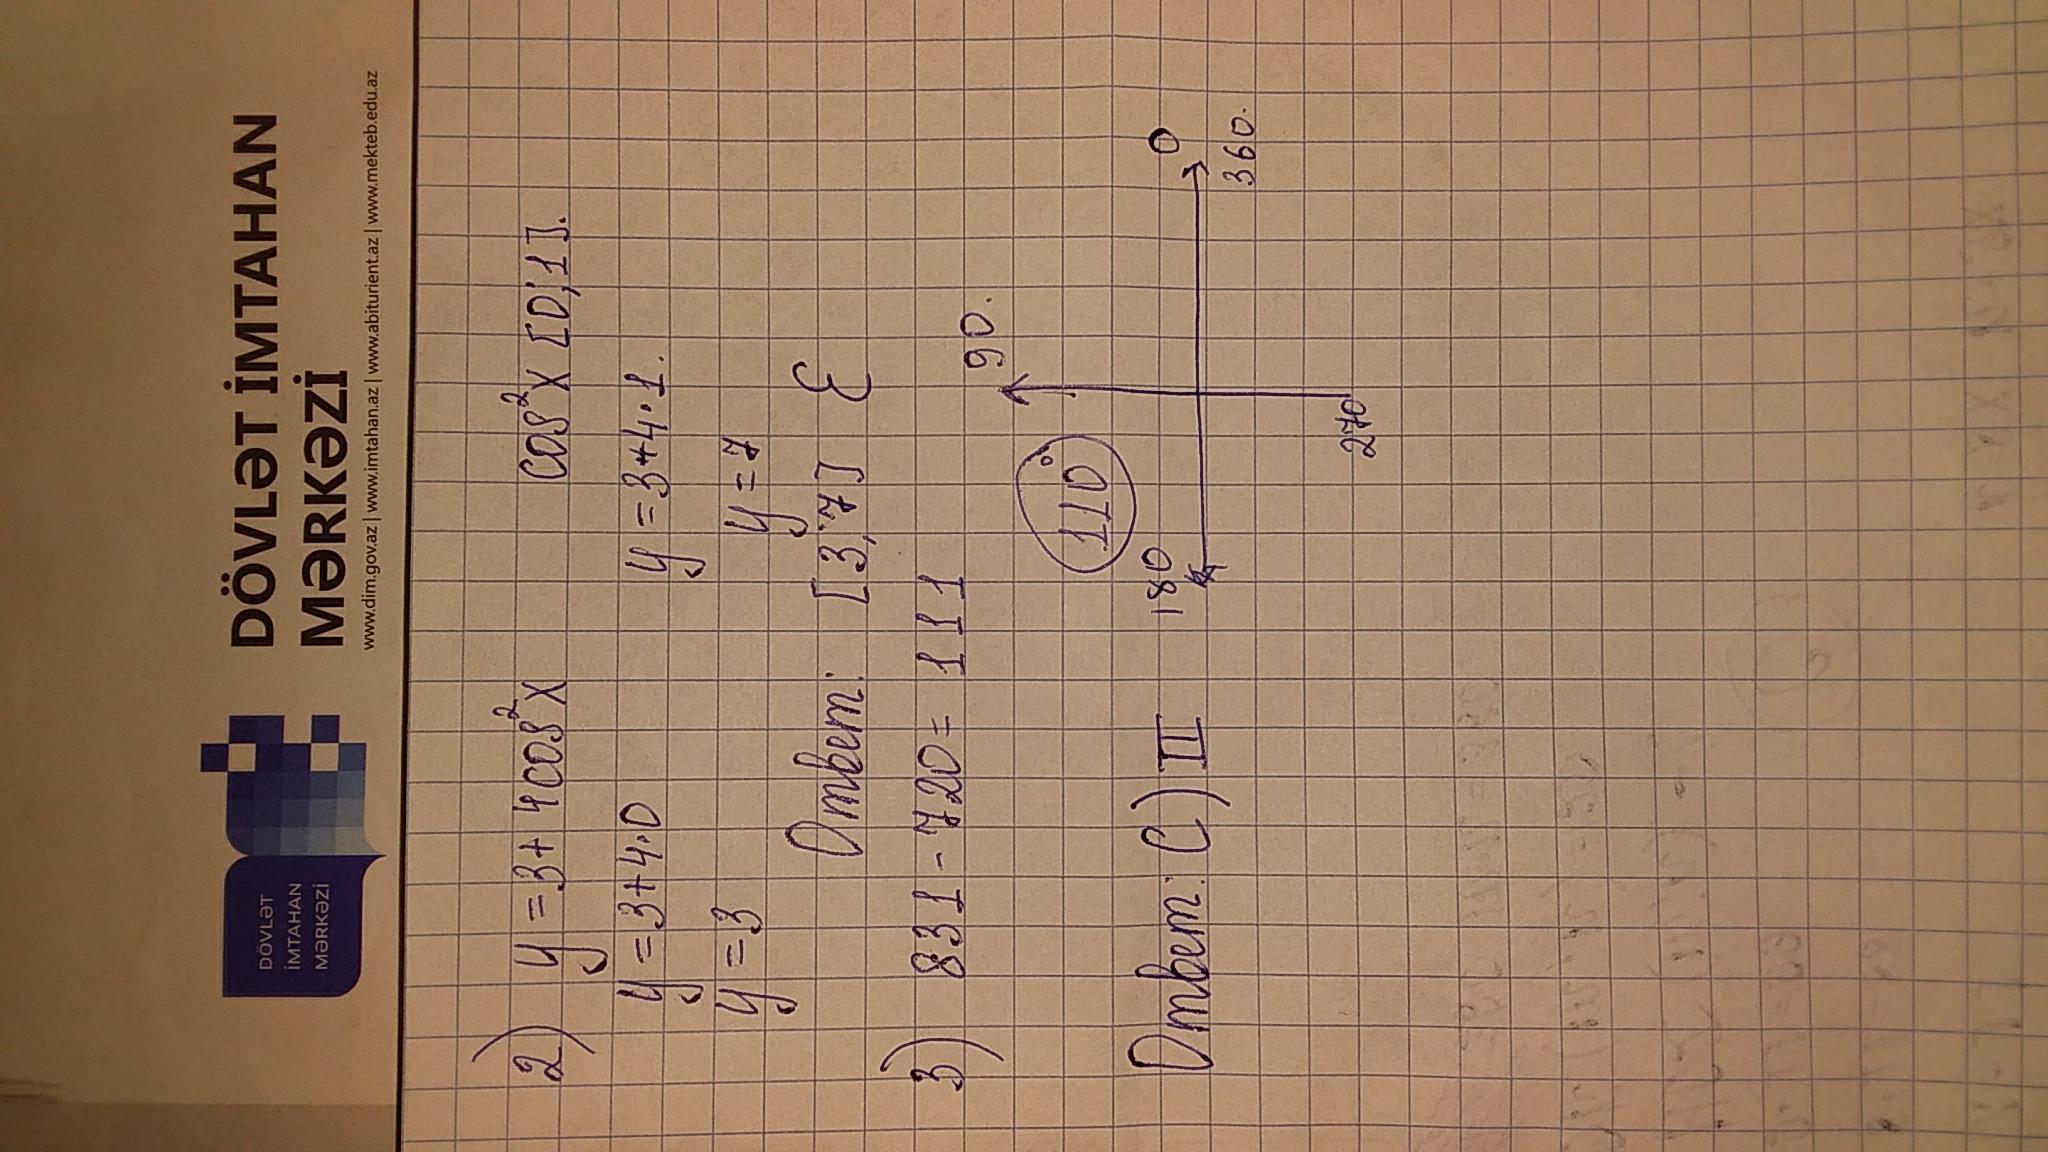 DÖVLƏT
İMTAHAN
MƏRKƏZİ
DÖVLƏT İMTAHAN
MƏRKƏZİ
www.dim.gov.az | www.imtahan.az | www.abiturient.az | www.mekteb.edu.az
2) y = 3 + 4cos²x cos²x [0; 1].
y = 3 + 4·0 y = 3 + 4·1.
y = 3 y = 7
Ответ: [3, 7] Ɛ
3) 831 - 720 = 111
90.
110°
180
0
360.
270
Ответ: C) II